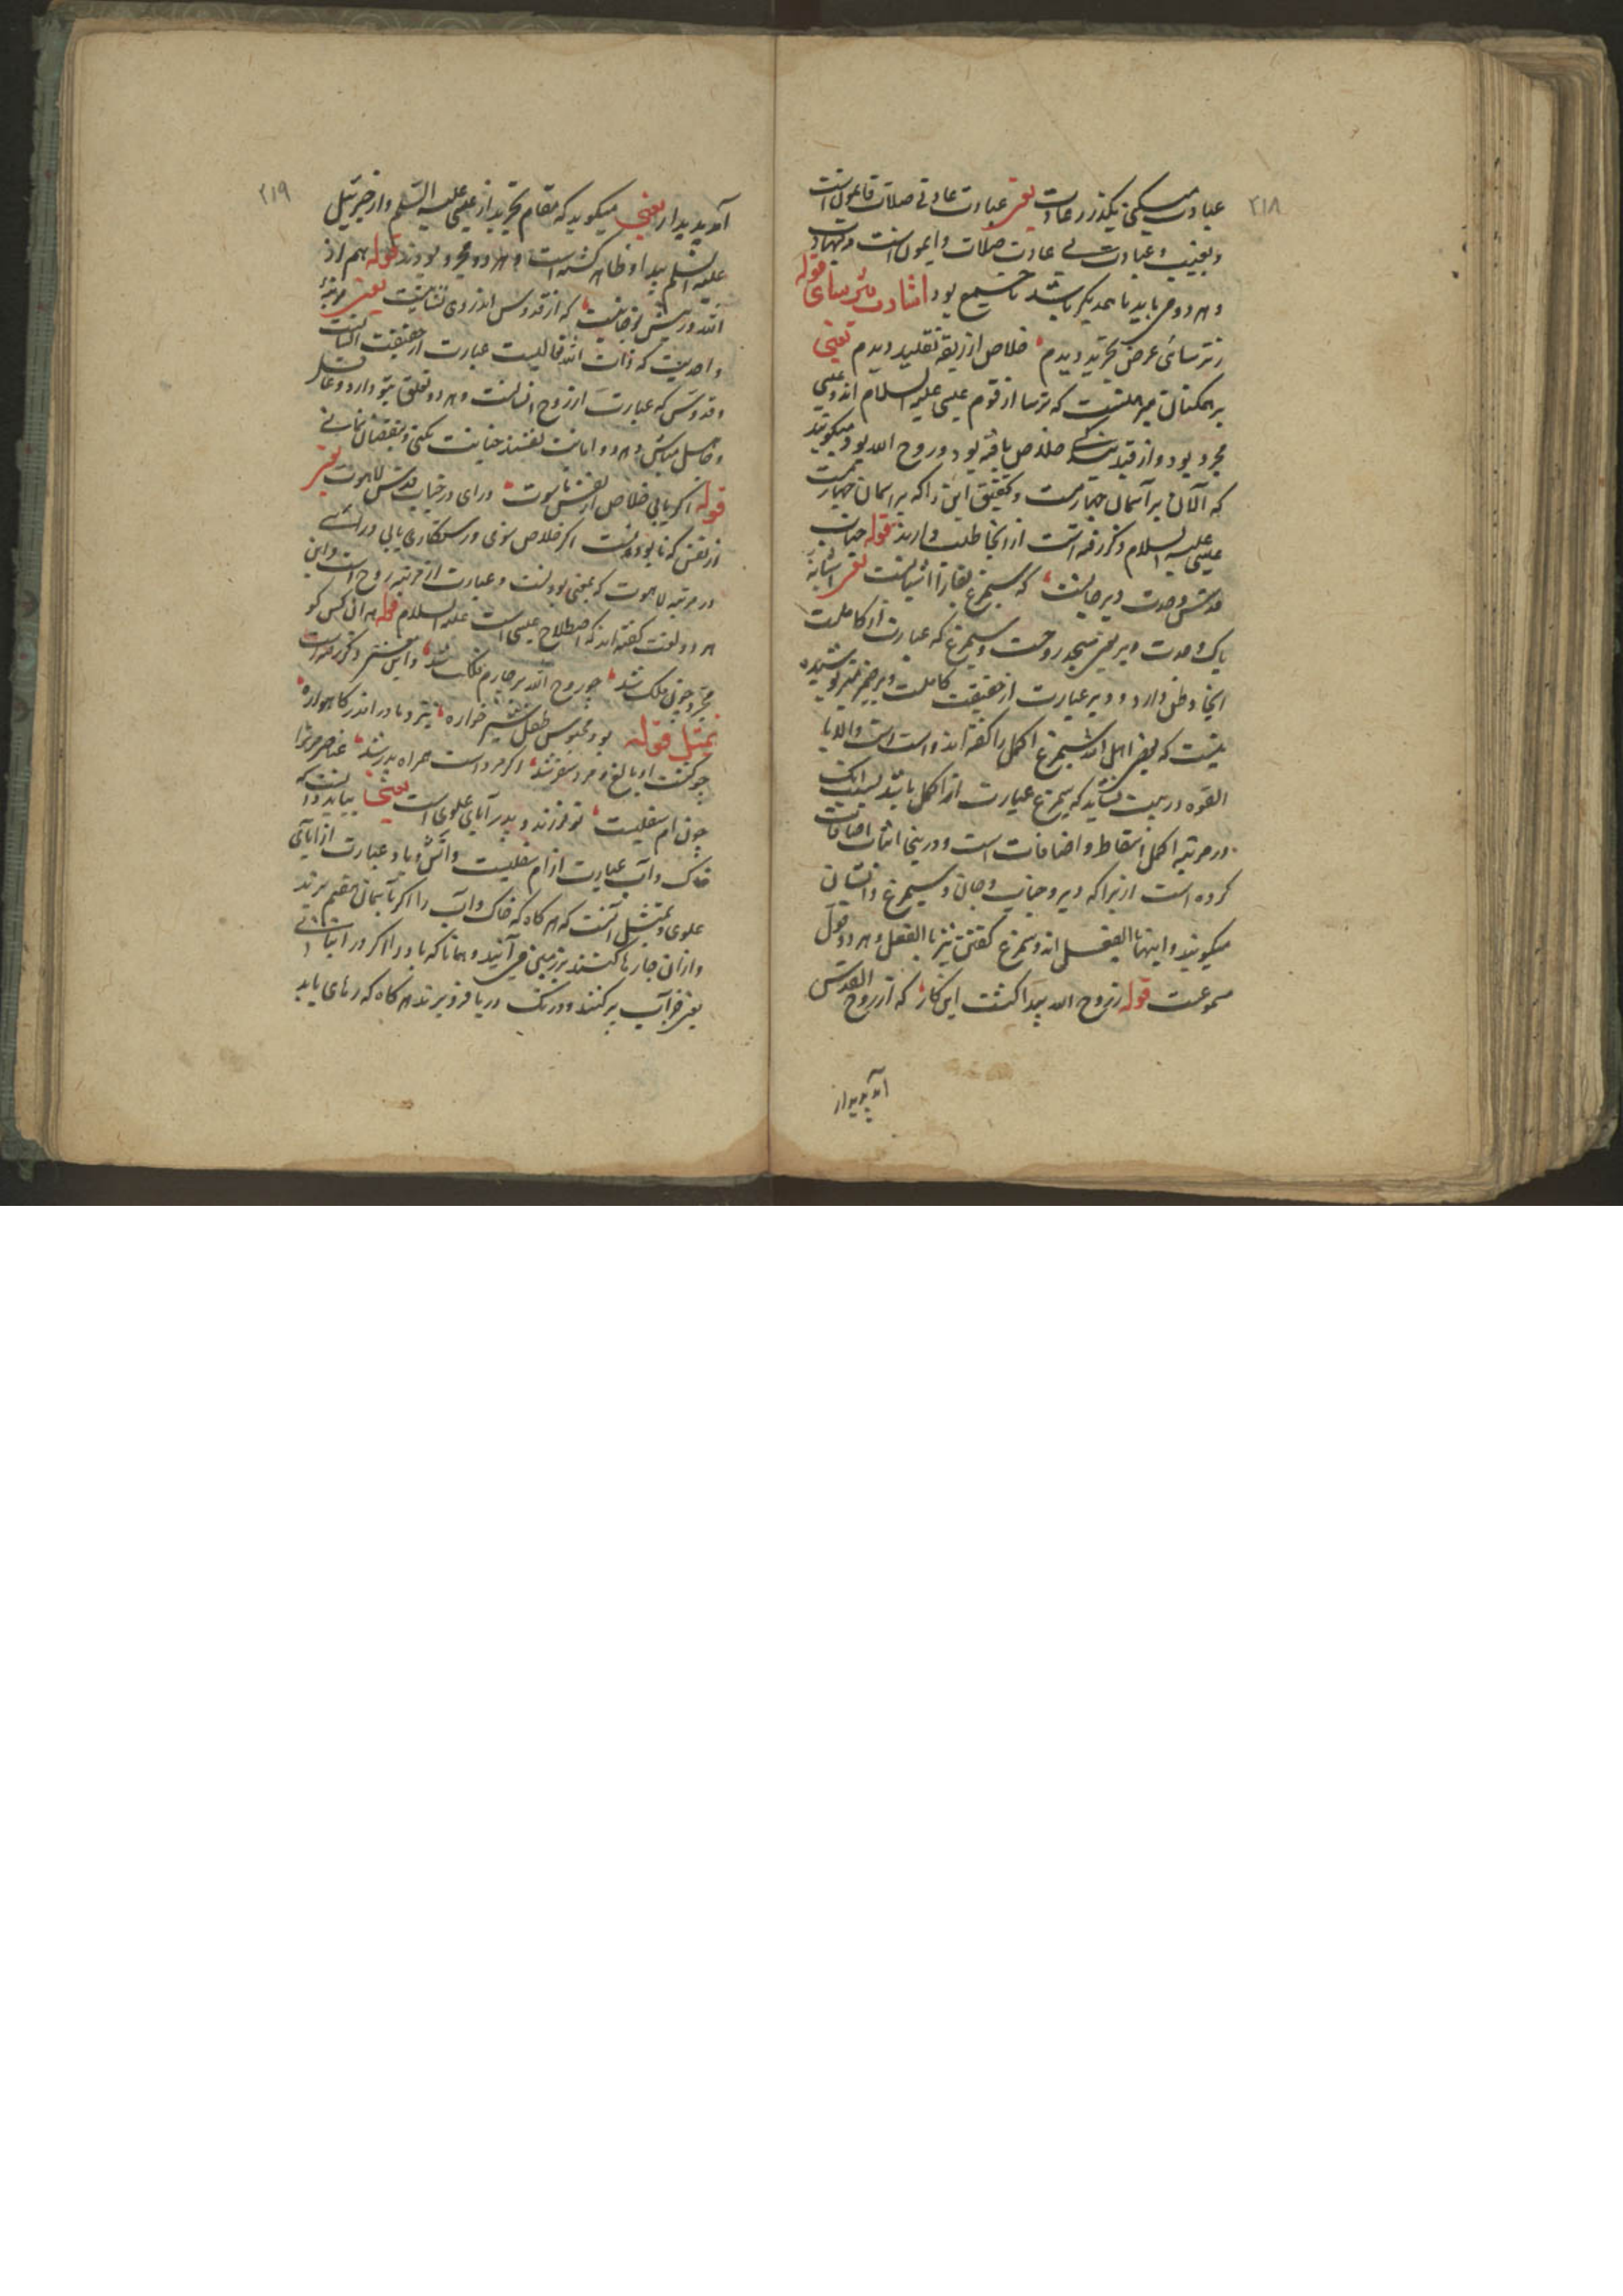 ۲۱۸
عبادت میکنی بگذر ز عادت یعنی عبادت عادتی صلات
و عبادت بی عادت صلات دایمون است
و هر دو می باید با یکدیگر باشد تا جمع بود اشارت ترسای قوله
ز ترسائی غرض تجرید دیدم خلاص از ربقه تقلید دیدم یعنی
بر همکنان که ترسا از قوم عیسی علیه السلام اند و عیسی
مجرد بود و از قید خلاص یافته بود و روح الله بود میکویند
که الان بر آسمان چهارمست و تحقیق این را که بر آسمان چهارمست
عیسی علیه السلام ذکر رفته است از انجا طلب دارند قوله جناب
قدس وحدت دیر جانست که سیمرغ بقا را آشیانست یعنی
پاک وحدت دیر یعنی مسجد روحست و سیمرغ که عبارت از کاملست
اینجا وطن دارد و دیر عبارت از حقیقت کاملست
نیست که بعضی اهل الله سیمرغ اکمل را گفته اند و است
القوه درست نیاید که سیمرغ عبارت از اکمل باشد
در مرتبه اکمل اسقاط و اضافات است و درینجا اثبات اضافات
کرده است از برا که دیر و جناب و جان و سیمرغ و آشیان
میکویند و اینها بالفعل اند و سیمرغ گفتن نیز بالفعل و هر دو قول
مسموعست قوله ز روح الله پیدا گشت این کار که از روح القدس
آمد پدیدار
۲۱۹
آمد پدیدار یعنی میکوید که مقام تجرید از عیسی علیه السلم و از جبرئیل
علیه السلم پیدا و ظاهر گشته است و هر دو مجرد بودند قوله هم از
الله در پیش تو جانیست که از قدوس اندر وی نشانیست یعنی مرتبه
واحدیت که ذات الله تعالیست عبارت از حقیقت انسانست
و قدوس که عبارت از روح انسانست و هر دو تعلق بتو دارد و غافل
و جاهل مباش و هر دو امانت خیانت نکنی و بنقصان
قوله اگر یابی خلاص از نفس ناسوت در آی در جناب قدس لاهوت یعنی
از نفس که نابودنست اگر خلاص شوی و رستکاری یابی در آئی
در مرتبه لاهوت که بمعنی بودنست و عبارت از مرتبه روح است و این
هر دو لغت گفته اند که اصطلاح عیسی است علیه السلام قوله هر آن کس کو
مجرد چون ملک شد چو روح الله بر چارم فلک شد و این معنی ذکر رفته است
تمثیل قوله بود محبوس طفل شیرخواره بنزد مادر اندر کاهواره
چو گشت او بالغ و مرد سفر شد اگر مرد است همراه پدر شد عناصر مر ترا
چون ام سفلیست تو فرزند و پدر آبای علوی است یعنی بباید دانست که
خاک و آب عبارت از ام سفلیست و آتش و باد عبارت از آبای
علوی و تمثیل آنست که هر کاه که خاک و آب را اگر تا بآسمان هفتم برند
و از ان جا رها کنند بر زمین می آیند و همانا که باد را اگر در انبانی
یعنی پر کنند و در تک دریا فرو برند هر کاه که رهای یابد